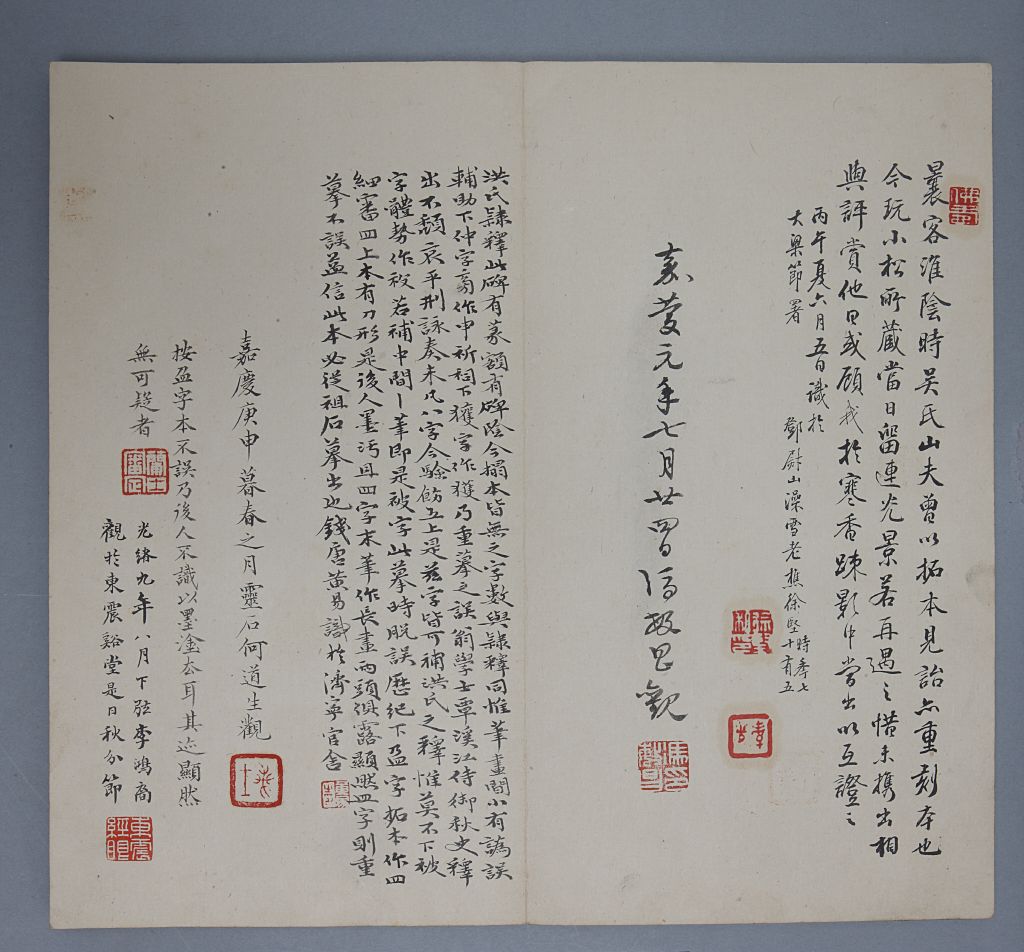 曩客淮陰時吴氏山夫曾以拓本見詒亦重刻本也
今玩小松所藏當日留連光景若再遇之惜未携出相
與評賞他日或顧我於寒香疎影中當出以互證之
丙午夏六月五日識於
大梁節署
鄧尉山澡雪老樵徐堅時年七
十有五
嘉慶元年七月廿四日馮敏昌觀
洪氏隸釋此碑有篆額有碑陰今搨本皆無之字數與隸釋同惟筆畫間小有譌誤
輔助下仲字旁作中祈祠下獲字作獲乃重摹之誤翁學士覃溪江侍御秋史釋
出不頽哀平刑詠奏耒凡八字今驗飭五上是茲字皆可補洪氏之釋惟莫不下被
字體勢作衩若補中間丨筆即是被字此摹時脫誤歷紀下盈字拓本作四
細審四上本有刀形是後人墨污且四字末筆作長畫兩頭俱露顯然皿字則重
摹不誤益信此本必從祖石摹出也錢唐黄易識於濟寧官舍
嘉慶庚申暮春之月靈石何道生觀
按盈字本不誤乃後人不識以墨塗去耳其迹顯然
無可疑者
光緒九年八月下弦李鴻裔
觀於東震谿堂是日秋分節